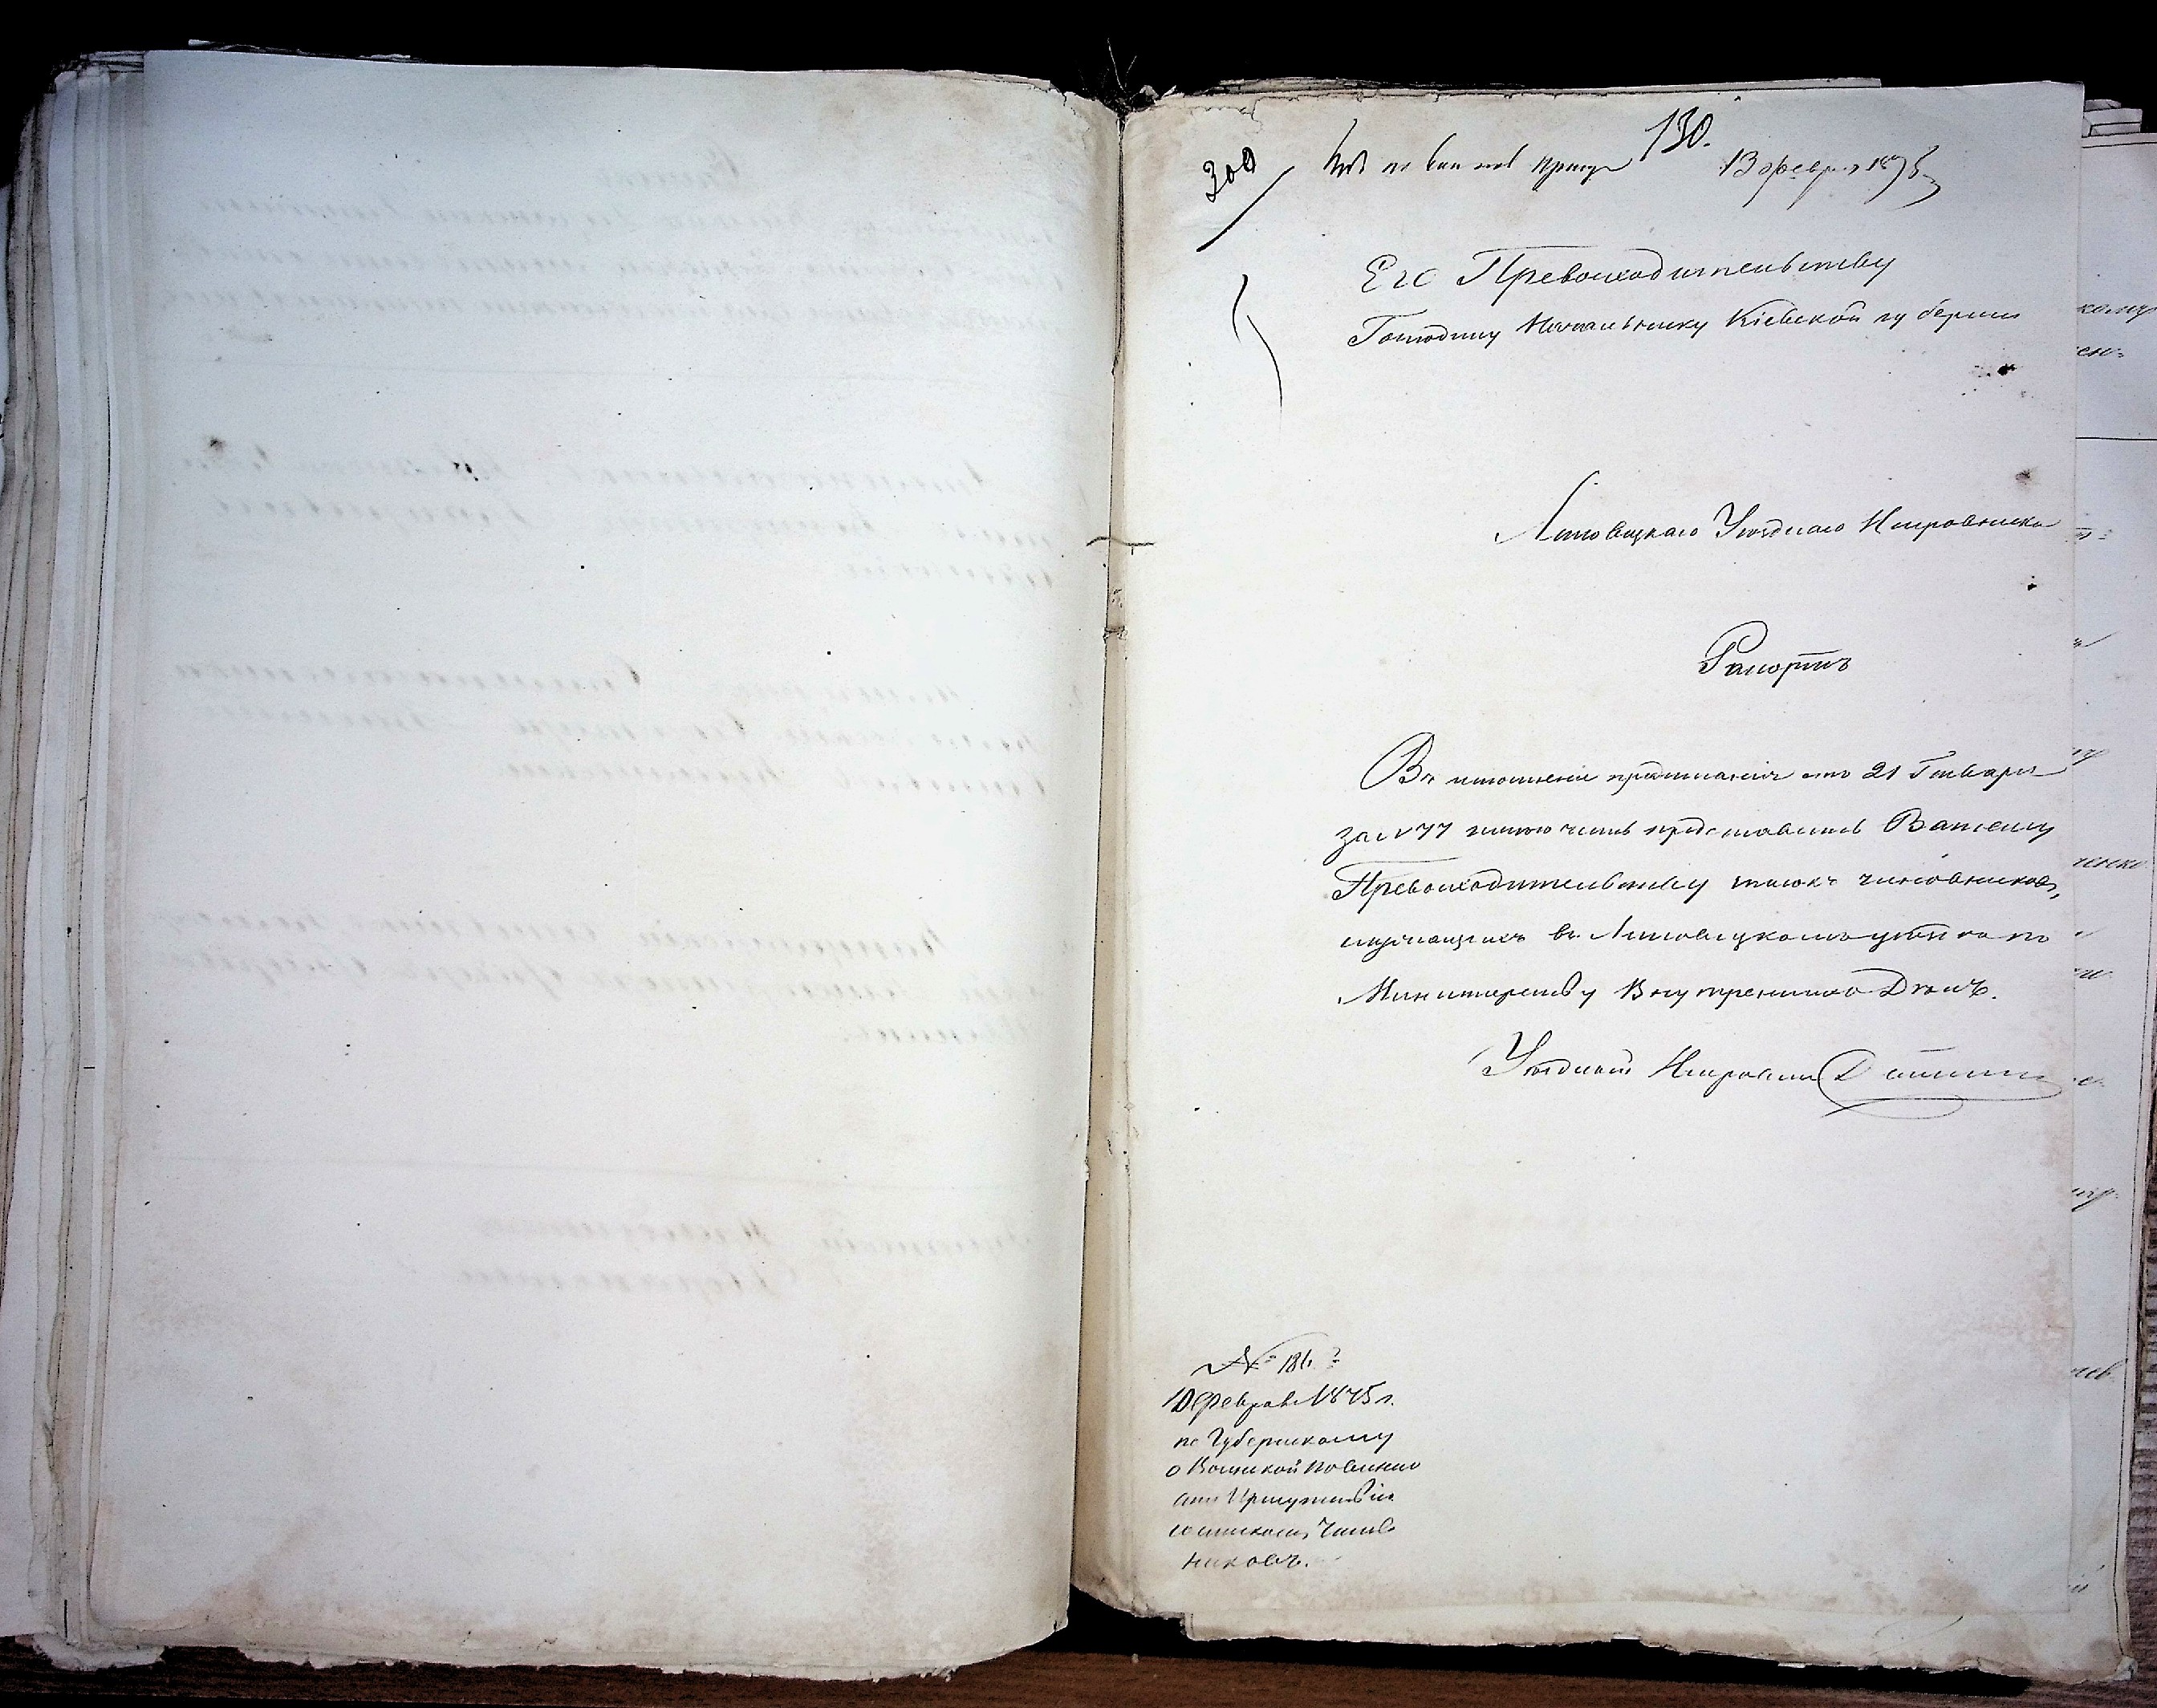 130.
300
13 февр. 1875
Его Превосходительству
Господину Начальнику Кіевской губерніи
Липовецкаго Уѣзднаго Исправника
Рапортъ
Въ исполненіе предписанія отъ 21 Генваря
за № 77 имѣю честь представить Вашему
Превосходительству списокъ чиновниковъ,
служащихъ въ Липовецкомъ уѣздѣ по
Министерству Внутреннихъ Дѣлъ.
Уѣздный Исправникъ
№
Февраля 1875 г.
по Губернскому
о Воинской повинно
сти Присутствію
со спискомъ Чинов
никовъ.